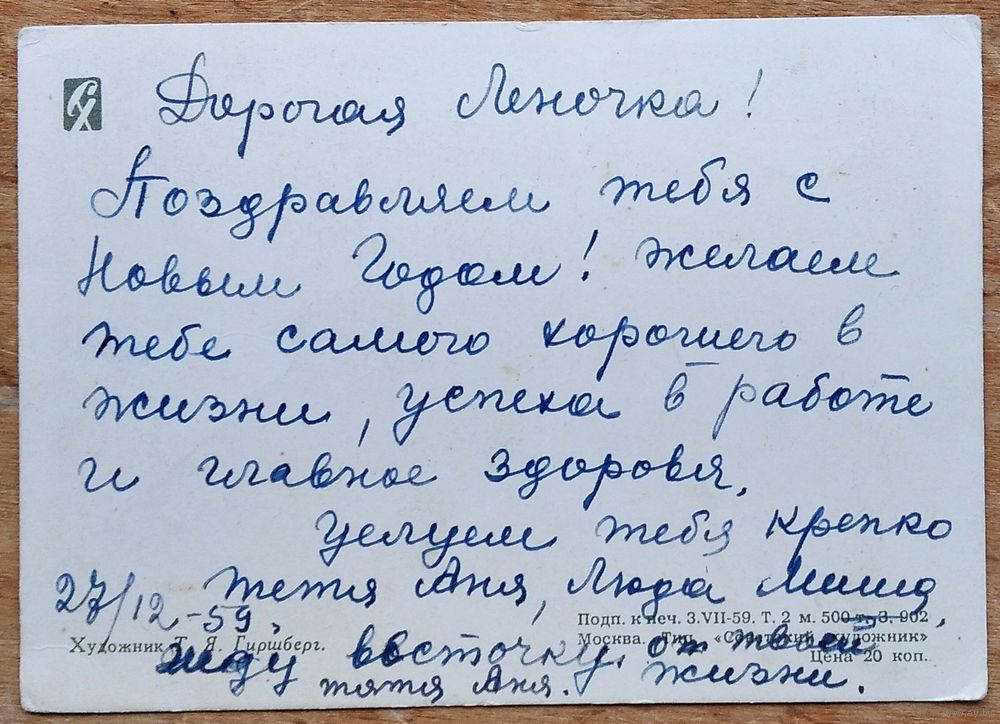 Дорогая Леночка!
Поздравляем тебя с
Новым Годом! желаем
тебе самого хорошего в
жизни, успеха в работе
и главное здоровья.
целуем тебя крепко
27/12-59. тетя Аня, Люда Миша,
Подп. к печ. 3.VII-59. Т. 2 м. 500 т. З. 902
Художник Т. Я. Гиршберг.
Москва. Тип. «Советский художник»
Цена 20 коп.
жду весточку. от твоей
тетя Аня. жизни.